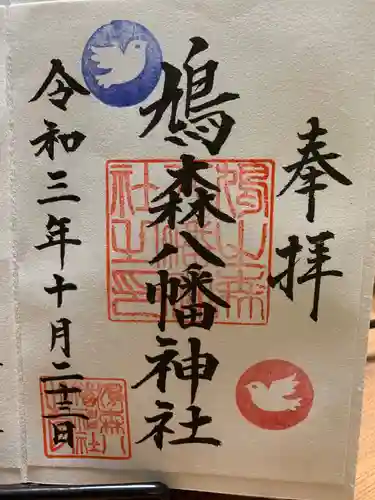 奉拝
鳩森八幡神社
令和三年十月二十三日
鳩之森
八幡神
社之印